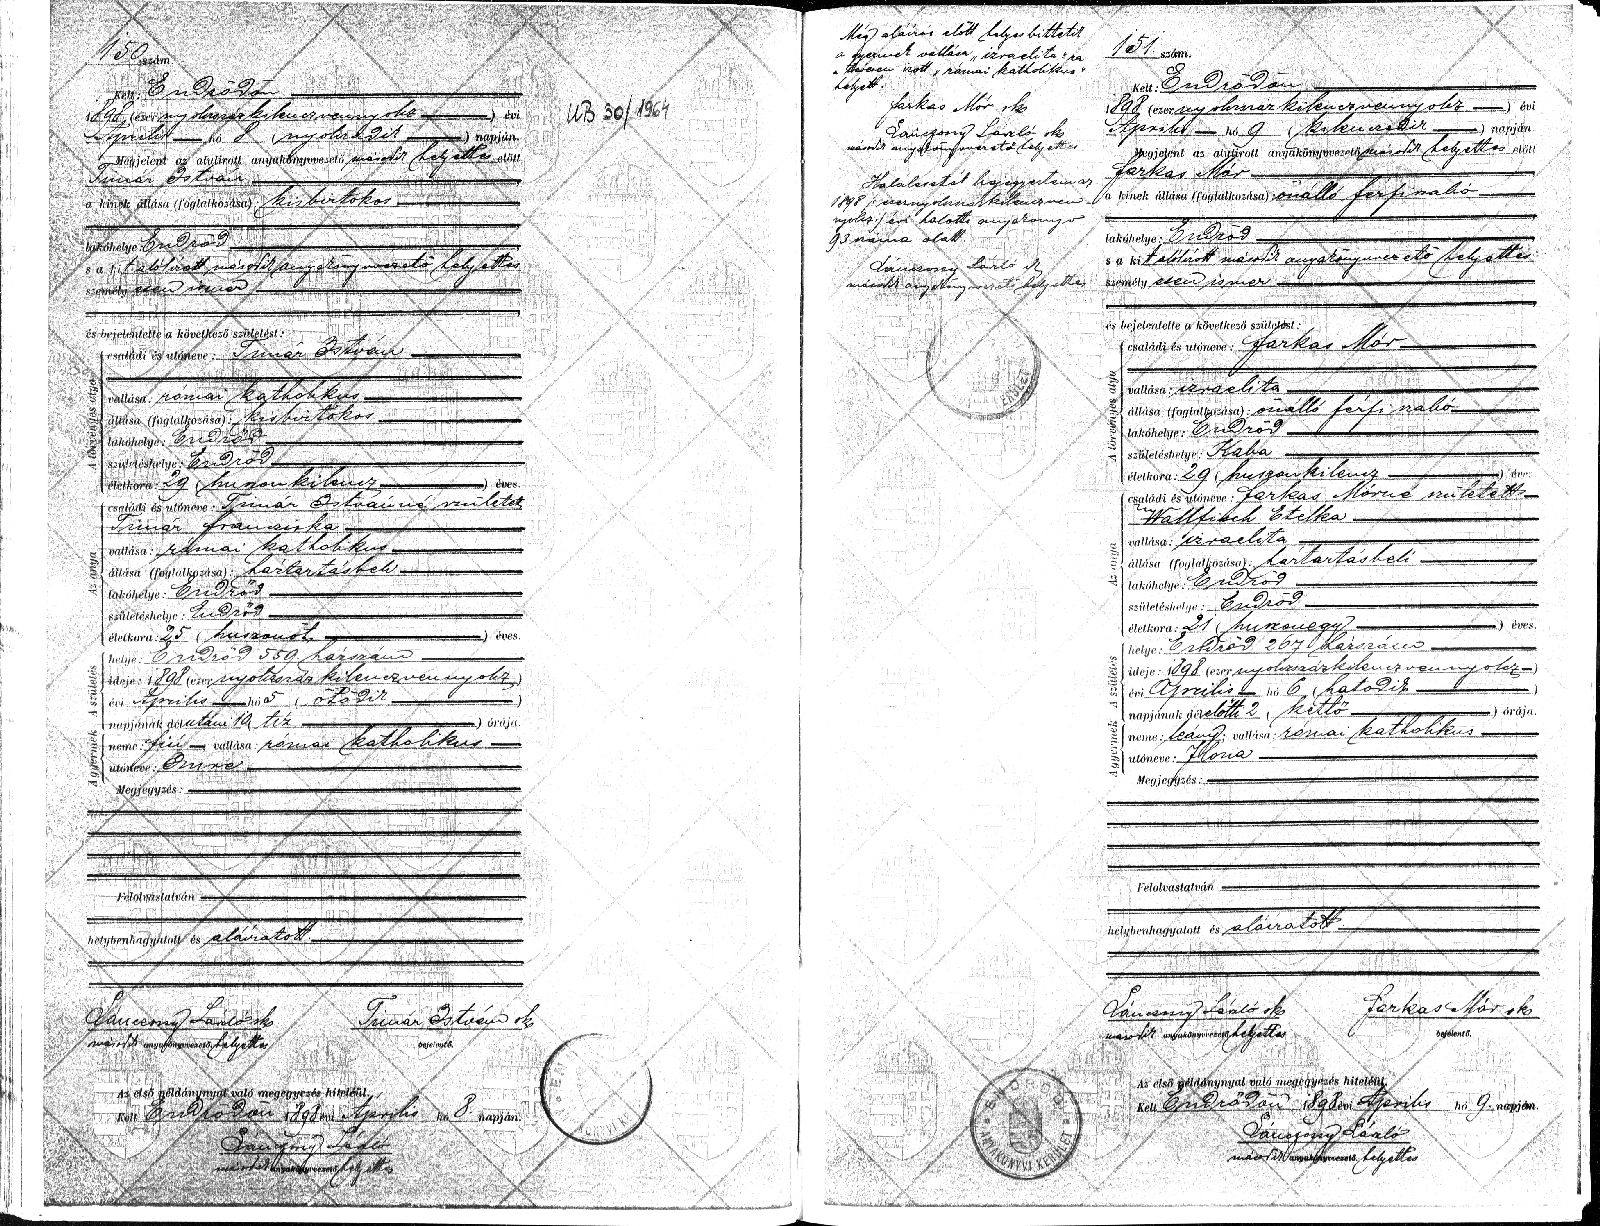 150 szám.
Kelt: Endrődön
1898 (ezer nyolcszázkilenczvennyolc) évi
Április hó 8 (nyolczadik) napján.
Megjelent az alulirott anyakönyvvezető második helyettes előtt
Timár István
a kinek állása (foglalkozása) kisbirtokos
lakóhelye: Endrőd
s a kit alólirott második anyakönyvvezető helyettes
személyesen ismer
és bejelentette a következő születést:
A törvényes atya
családi és utóneve: Timár István
vallása: római katholikus
állása (foglalkozása): kisbirtokos
lakóhelye: Endrőd
születéshelye: Endrőd
életkora: 29 (huszonkilencz) éves.
Az anya
családi és utóneve: Timár Istvánné született
Timár Francziska
vallása: római katholikus
állása (foglalkozása): háztartásbeli
lakóhelye: Endrőd
születéshelye: Endrőd
életkora: 25 (huszonöt) éves.
A születés
helye: Endrőd 559 házszám
ideje: 1898 (ezer nyolczszázkilenczvennyolcz)
évi Április hó 5 (ötödik)
napjának délutáni 10 tiz) órája.
A gyermek
neme: fiú vallása: római katholikus
utóneve: Emre
Megjegyzés:
Felolvastatván
helybenhagyatott és aláiratott
Lánczony László sk
második anyakönyvvezető helyettes
Timár István sk
bejelentő.
Az első példánynyal való megegyezés hiteléül.
Kelt Endrődön 1898 évi Április hó 8. napján.
Lánczony László
második anyakönyvvezető helyettes
UB 30/1964
Még aláirás előtt helyesbittetik
a gyermek vallása „izraelita"-ra
írott „római katholikus"
helyett.
Farkas Mór sk
Lánczony László sk
második anyakönyvvezető helyettes
Halálesetét bejegyeztem az
1898 (ezernyolczszázkilenczven
nyolcz) évi halotti anyakönyv
93 száma alatt
Lánczony László sk
második anyakönyvvezető helyettes
151. szám.
Kelt: Endrődön
1898 (ezer nyolczszázkilenczvennyolcz) évi
Április hó 9 (kilenczedik) napján.
Megjelent az alulirott anyakönyvvezető második helyettes előtt
Farkas Mór
a kinek állása (foglalkozása) önálló férfi szabó
lakóhelye: Endrőd
s a kit alólirott második anyakönyvvezető helyettes
személyesen ismer
és bejelentette a következő születést:
A törvényes atya
családi és utóneve: Farkas Mór
vallása: izraelita
állása (foglalkozása): önálló férfi szabó
lakóhelye: Endrőd
születéshelye: Kaba
életkora: 29 (huszonkilencz) éves.
Az anya
családi és utóneve: Farkas Mórné született
Wallfisch Etelka
vallása: izraelita
állása (foglalkozása): háztartásbeli
lakóhelye: Endrőd
születéshelye: Endrőd
életkora: 21 (huszonegy) éves.
A születés
helye: Endrőd 267 házszám
ideje: 1898 (ezer nyolczszázkilenczvennyolcz)
évi Április hó 6 (hatodik)
napjának délelőtti 2 (kettő) órája.
A gyermek
neme: leány vallása: római katholikus
utóneve: Ilona
Megjegyzés:
Felolvastatván
helybenhagyatott és aláiratott
Lánczony László sk
második anyakönyvvezető helyettes
Farkas Mór sk
bejelentő.
Az első példánynyal való megegyezés hiteléül.
Kelt Endrődön 1898 évi Április hó 9. napján.
Lánczony László
második anyakönyvvezető helyettes
ENDRŐD
ANYAKÖNYVI KERÜLET